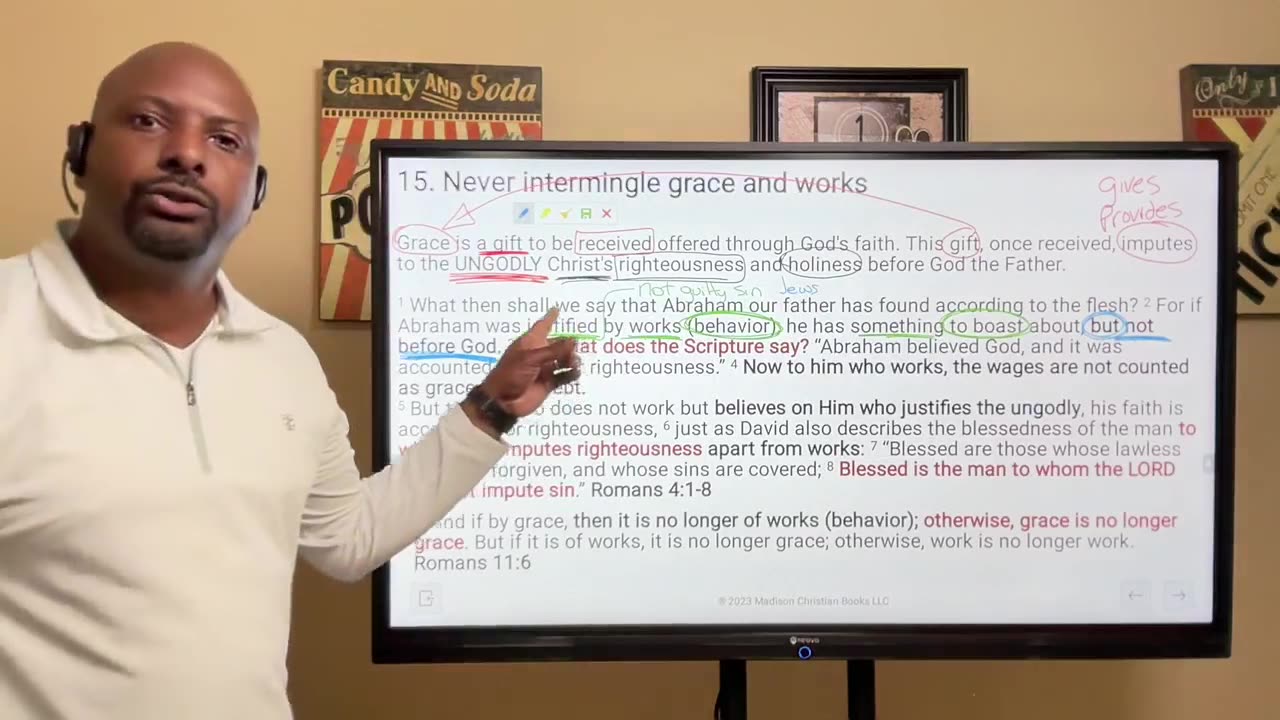 Candy AND Soda
PO
1
Only
15. Never intermingle grace and works
gives
Provides
Grace is a gift to be received offered through God's faith. This gift, once received, imputes
to the UNGODLY Christ's righteousness and holiness before God the Father.
not guilty sin Jews
1 What then shall we say that Abraham our father has found according to the flesh? 2 For if
Abraham was by works (behavior), he has something to boast about, but not
before God. does the Scripture say? “Abraham believed God, and it was
accounted righteousness.” 4 Now to him who works, the wages are not counted
as grace
5 But does not work but believes on Him who justifies the ungodly, his faith is
righteousness, 6 just as David also describes the blessedness of the man to
imputes righteousness apart from works: 7 “Blessed are those whose lawless
forgiven, and whose sins are covered; 8 Blessed is the man to whom the LORD
impute sin.” Romans 4:1-8
if by grace, then it is no longer of works (behavior); otherwise, grace is no longer
grace. But if it is of works, it is no longer grace; otherwise, work is no longer work.
Romans 11:6
® 2023 Madison Christian Books LLC
neovo